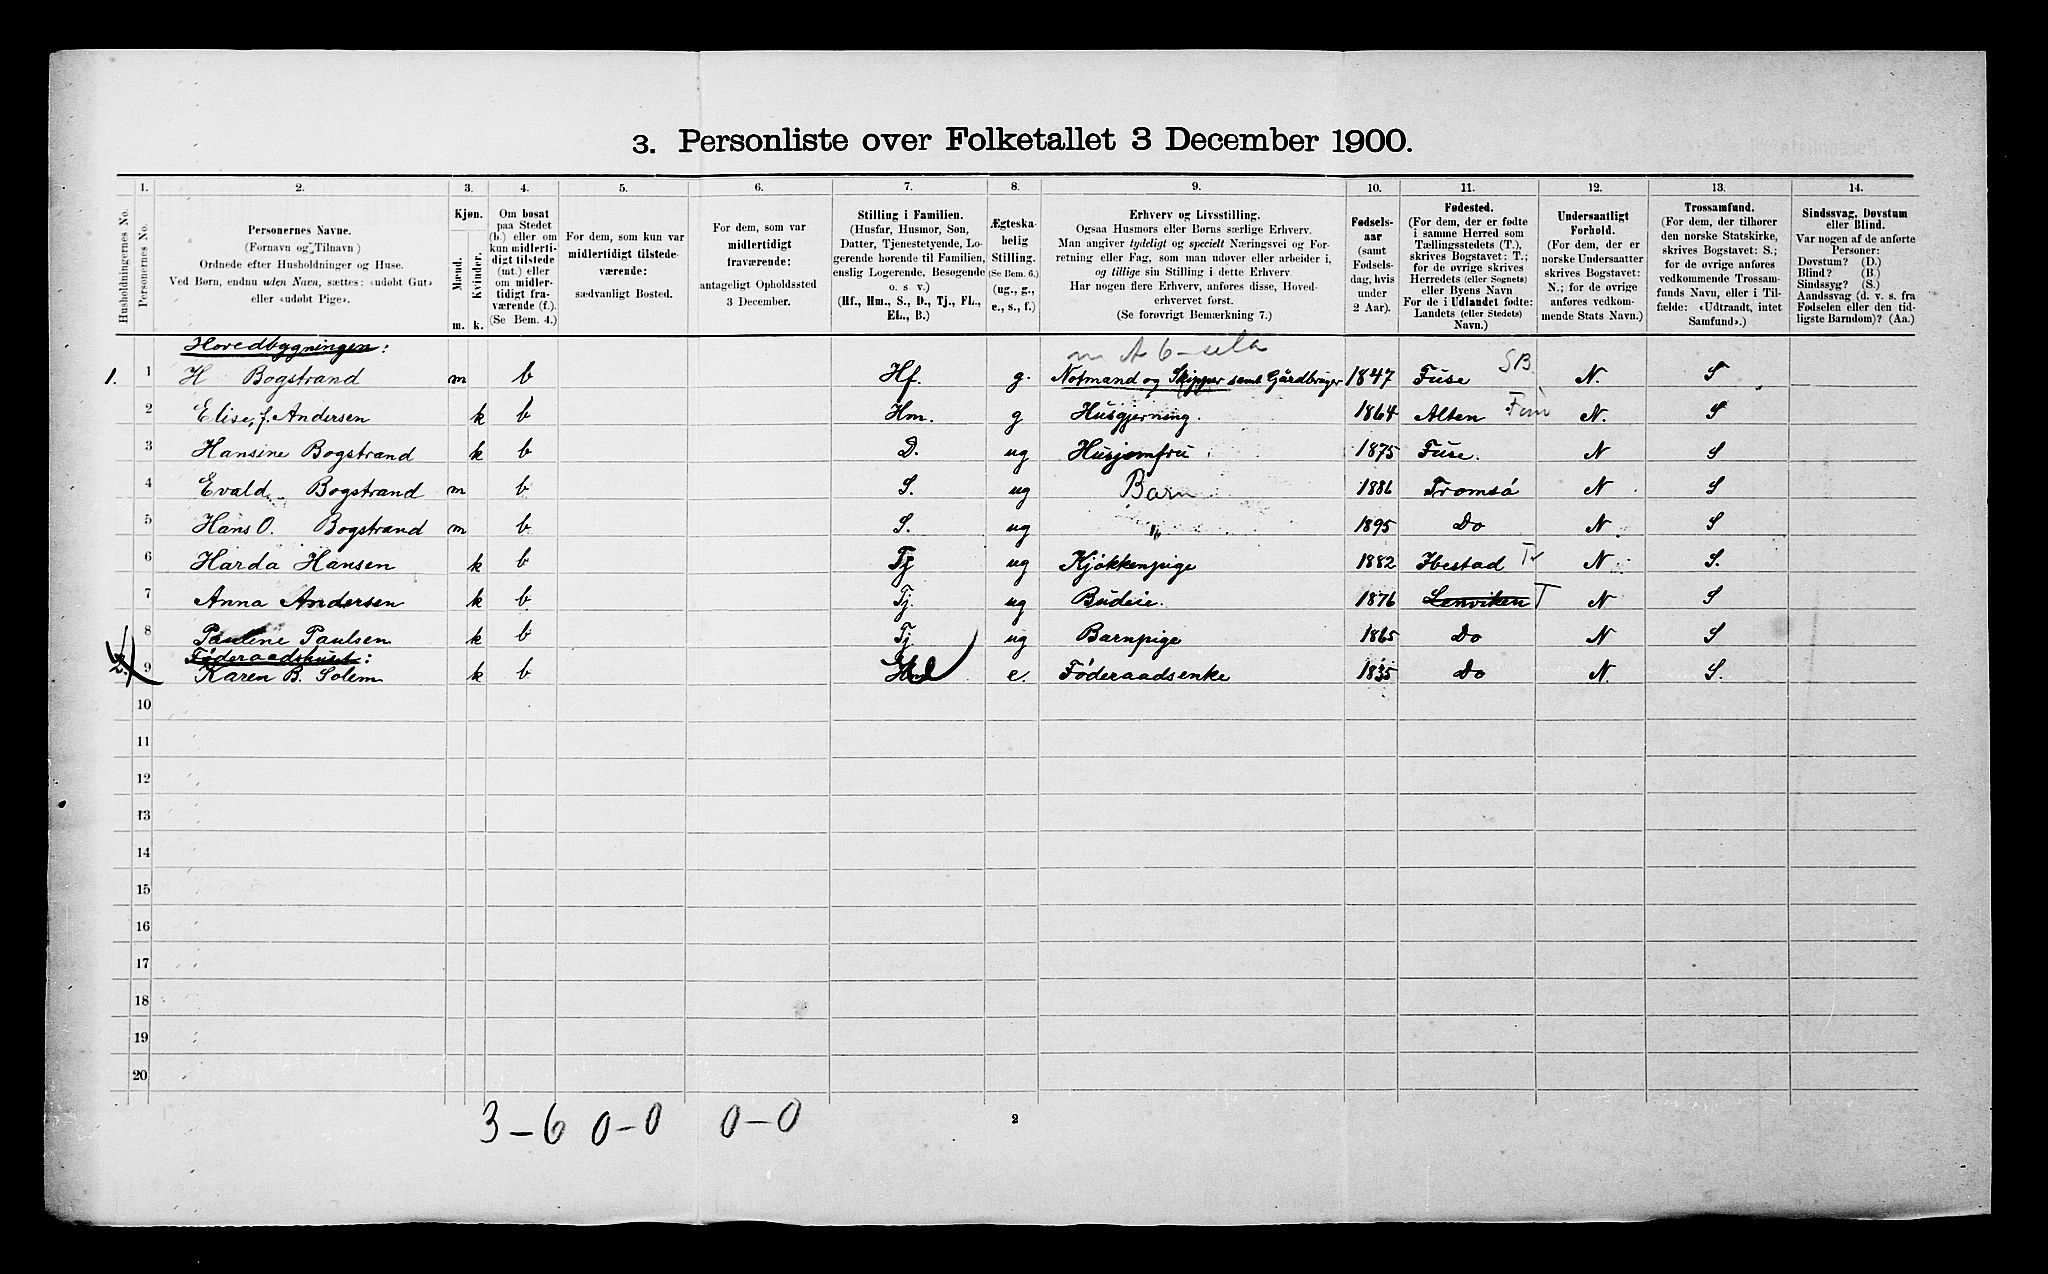 3. Personliste over Folketallet 3 December 1900.
1. 2. 3. 4. 5. 6. 7. 8. 9. 10. 11. 12. 13. 14.
Husholdningernes No.
Personernes No.
Personernes Navne.
(Fornavn og Tilnavn)
Ordnede efter Husholdninger og Huse.
Ved Børn, endnu uden Navn, sættes: «udøbt Gut»
eller «udøbt Pige».
Kjøn.
Mænd.
Kvinder.
m. k.
Om bosat
paa Stedet
(b.) eller om
kun midlerti-
digt tilstede
(mt.) eller
om midler-
tidigt fra-
værende (f.).
(Se Bem. 4.)
For dem, som kun var
midlertidigt tilstede-
værende:
sædvanligt Bosted.
For dem, som var
midlertidigt
fraværende:
antageligt Opholdssted
3 December.
Stilling i Familien.
(Husfar, Husmor, Søn,
Datter, Tjenestetyende, Lo-
gerende hørende til Familien,
enslig Logerende, Besøgende
o. s v.)
(Hf., Hm., S., D., Tj., FL.,
EL., B.)
Ægteska-
belig
Stilling.
(Se Bem. 6.)
(ug., g.,
e., s., f.)
Erhverv og Livsstilling.
Ogsaa Husmors eller Børns særlige Erhverv.
Man angiver tydeligt og specielt Næringsvei og For-
retning eller Fag, som man udøver eller arbeider i,
og tillige sin Stilling i dette Erhverv.
Har nogen flere Erhverv, anføres disse, Hoved-
erhvervet først.
(Se forøvrigt Bemærkning 7.)
Fødsels-
aar
(samt
Fødsels-
dag, hvis
under
2 Aar).
Fødested.
(For dem, der er fødte
i samme Herred som
Tællingsstedets (T.),
skrives Bogstavet: T.;
for de øvrige skrives
Herredets (eller Sognets)
eller Byens Navn
For de i Udlandet fødte:
Landets (eller Stedets)
Navn.)
Undersaatligt
Forhold.
(For dem, der er
norske Undersaatter
skrives Bogstavet:
N.; for de øvrige
anføres vedkom-
mende Stats Navn.)
Trossamfund.
(For dem, der tilhører
den norske Statskirke,
skrives Bogstavet: S.;
for de øvrige anføres
vedkommende Trossam-
funds Navn, eller i Til-
fælde: «Udtraadt, intet
Samfund».)
Sindssvag, Døvstum
eller Blind.
Var nogen af de anførte
Personer:
Døvstum? (D.)
Blind? (B.)
Sindssyg? (S.)
Aandssvag (d. v. s. fra
Fødselen eller den tid-
ligste Barndom)? (Aa.)
Hovedbygningen:
1. 1 H Bogstrand m b Hf. g. Notmand og Skipper samt Gårdbruger 1847 Fuse SB N. S
2 Elise, f. Andersen k b Hm. g Husgjerning. 1864 Alten Fin N. S
3 Hansine Bogstrand k b D. ug Husjomfru 1875 Fuse. N S
4 Evald Bogstrand m b S. ug Barn 1886 Tromsø N S
5 Hans O. Bogstrand m b S. ug " 1895 Do N. S
6 Harda Hansen k b Tj ug Kjøkkenpige 1882 Ibestad Tr N S.
7 Anna Andersen k b Tj. ug Budeie. 1876 Lenviken T N S
8 Pauline Paulsen k b Tj ug Barnpige 1865 Do N S
Føderaadshuset:
2. 9 Karen B. Solem k b e. Føderaadsenke 1835 Do N. S.
10
11
12
13
14
15
16
17
18
19
20
3-6 0-0 0-0
2